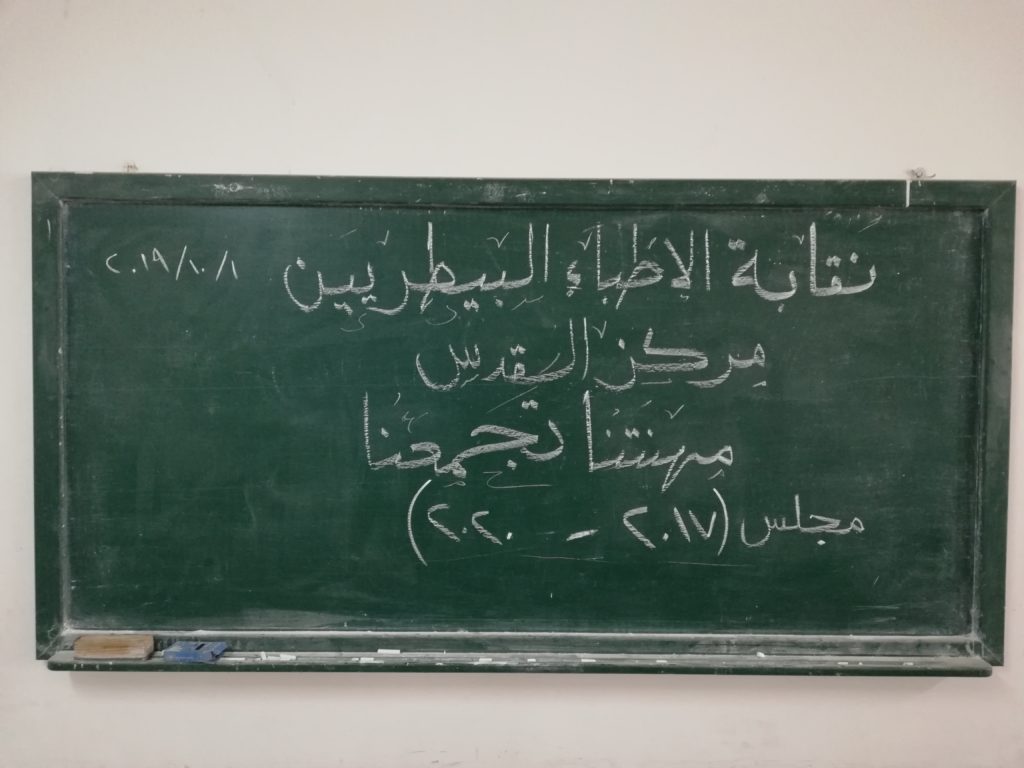 نقابة الاطباء البيطريين ٢٠١٩/١٠/١
مركز القدس
مهنتنا تجمعنا
مجلس (٢٠١٧ - ٢٠٢٠)